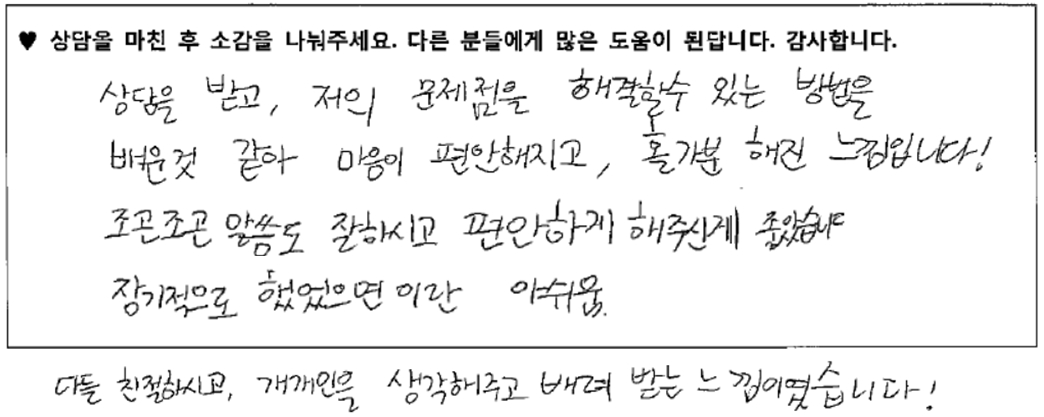 ♥ 상담을 마친 후 소감을 나눠주세요. 다른 분들에게 많은 도움이 된답니다. 감사합니다.
상담을 받고, 저의 문제점을 해결할수 있는 방법을
배운것 같아 마음이 편안해지고, 홀가분 해진 느낌입니다!
조곤조곤 말씀도 잘하시고 편안하게 해주신게 좋았습니다
장기적으로 했었으면 이란 아쉬움.
다들 친절하시고, 개개인을 생각해주고 배려 받는 느낌이였습니다!